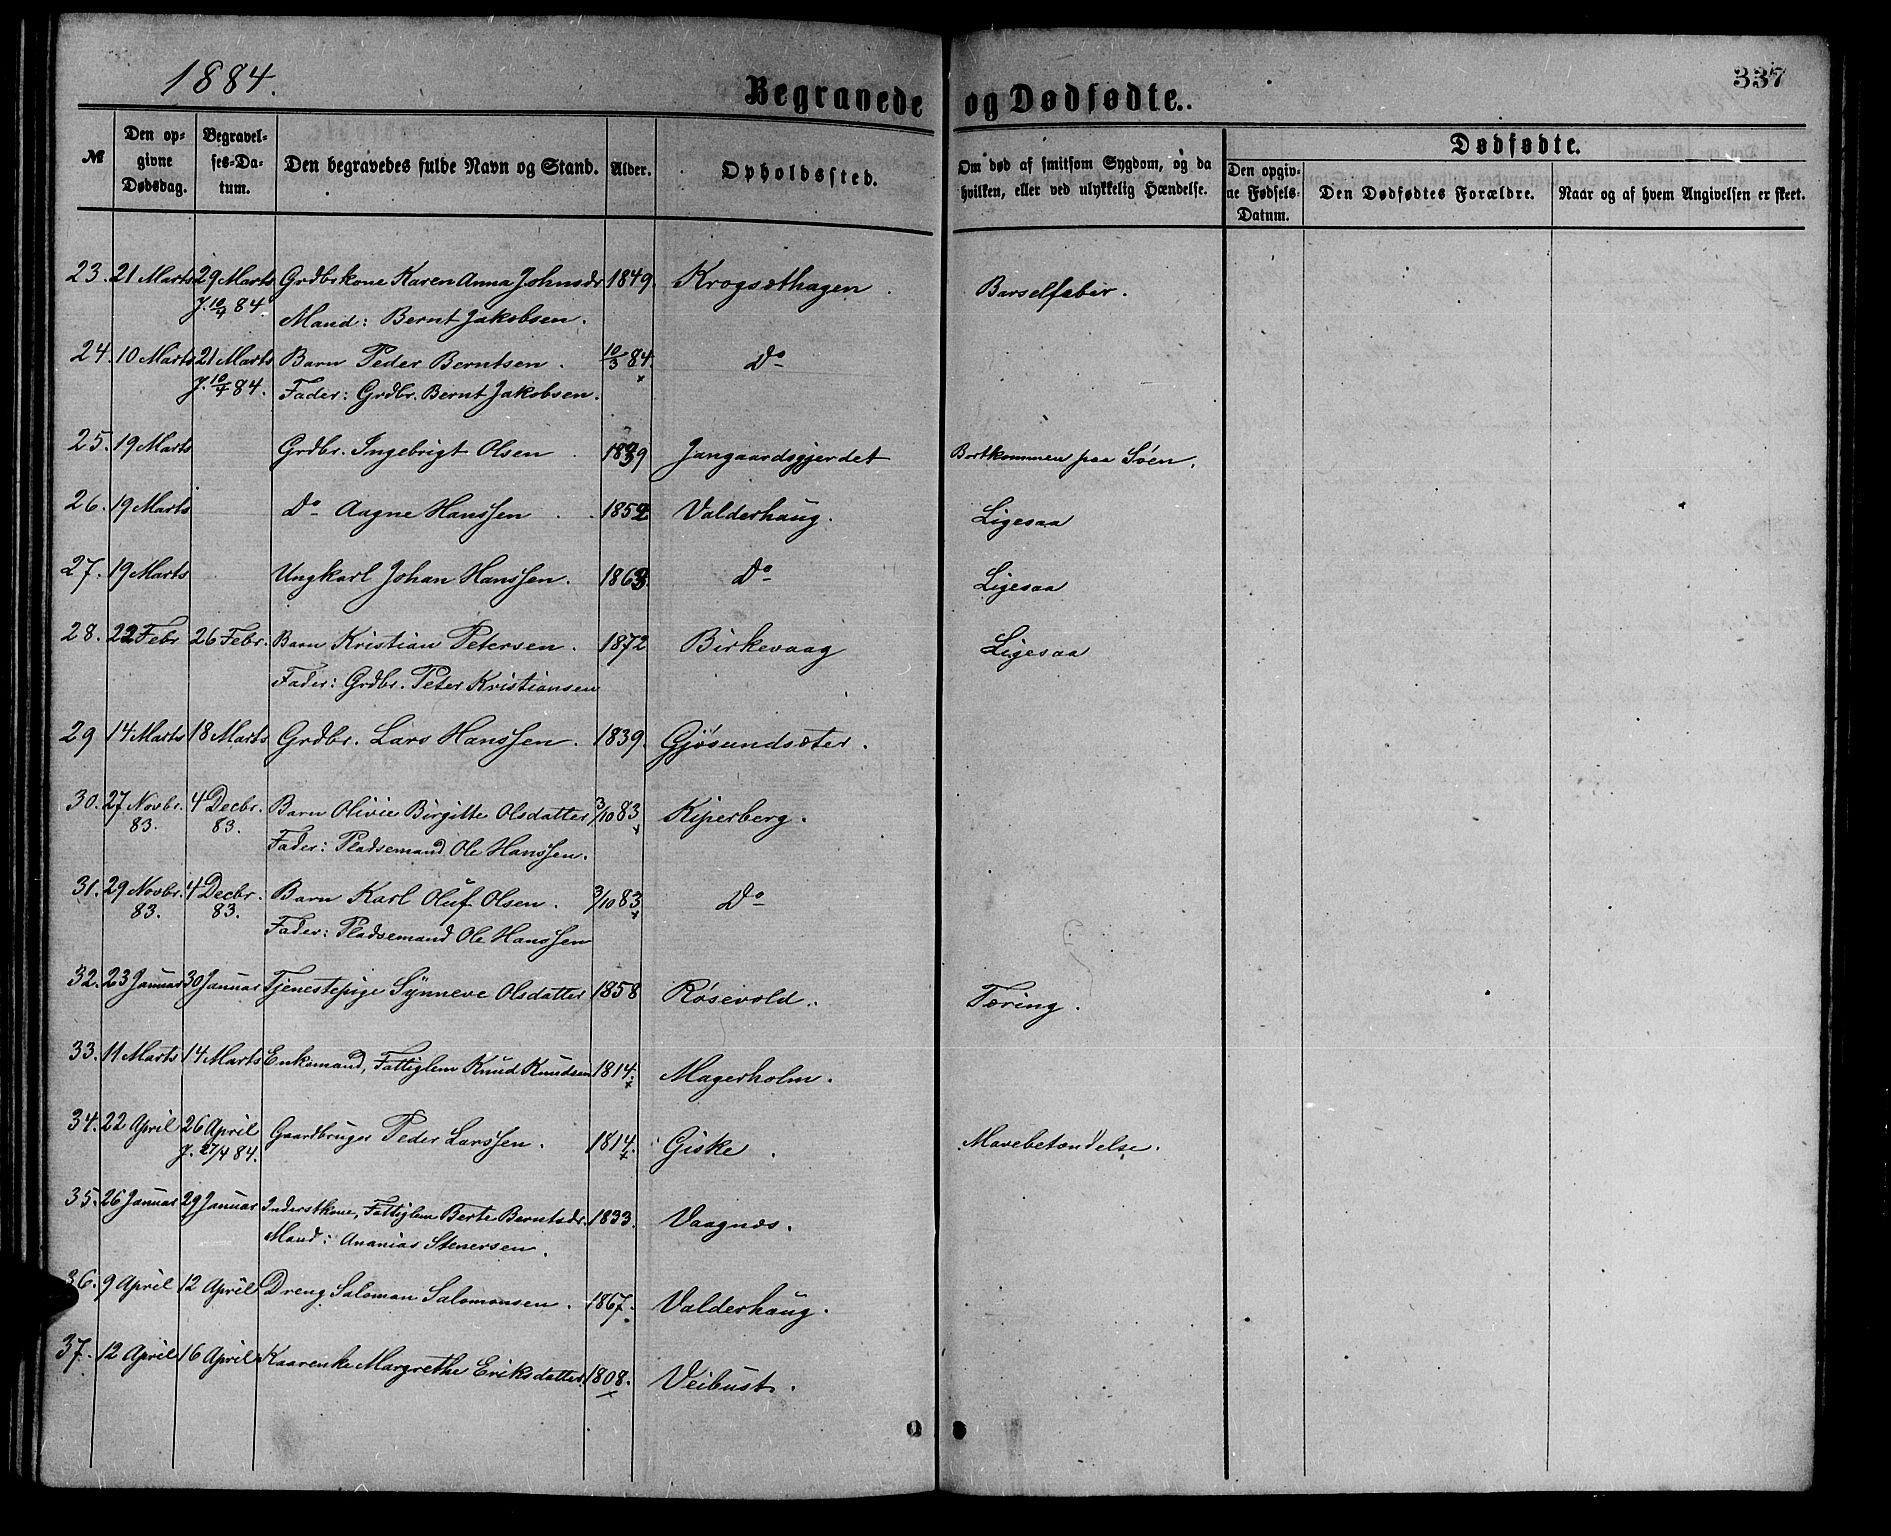 1884.
337
Begravede og Dødfødte.
№
Den opgivne Dødsdag.
Begravelses-Datum.
Den begravedes fulde Navn og Stand.
Alder.
Opholdssted.
Om død af smitsom Sygdom, og da hvilken, eller ved ulykkelig Hændelse.
Dødfødte.
Den opgivne Fødsels-Datum.
Den Dødfødtes Forældre.
Naar og af hvem Angivelsen er skeet.
23. 21 Marts 29 Marts Grdbrkone Karen Anna Johnsdr 1849. Krogsæthagen . Barselfeber.
J. 10/4 84. Mand: Bernt Jakobsen.
24. 10 Marts 21 Marts Barn Peder Berntsen . 10/3 84. Do
J. 10/4 84. Fader: Grdbr. Bernt Jakobsen.
25. 19 Marts Grdbr. Ingebrigt Olsen . 1839 Jangaardsgjerdet Bortkommen paa Søen.
26. 19 Marts Do Aagne Hanssen . 1852 Valderhaug. Ligesaa
27. 19 Marts Ungkarl Johan Hanssen. 1863. Do Ligesaa
28. 22 Febr 26 Febr. Barn Kristian Petersen. 1872 Birkevaag Ligesaa
Fader: Grdbr. Peter Kristiansen
29 14 Marts 18 Marts Grdbr. Lars Hanssen. 1839. Gjøsundsæter.
30. 27 Novbr. 4 Decbr. Barn Olivie Birgitte Olsdatter 3/10 83 Kiperberg.
83. 83. Fader: Pladsemand Ole Hanssen.
31. 29 Novbr. 4 Decbr. Barn Karl Oluf Olsen. 3/10 83 Do
83. 83. Fader: Pladsemand Ole Hanssen
32. 23 Januar 30 Januar Tjenestepige Synneve Olsdatter 1858 Røsevold. Tæring.
33. 11 Marts 14 Marts Enkemand, Fattiglem Knud Knudsen 1814. Magerholm.
34. 22 April 26 April Gaardbruger Peder Larssen. 1814. Giske . Mavebetændelse.
J. 27/4 84.
35. 26 Januar 29 Januar Inderstkone, Fattiglem Berte Berntsdr. 1833. Vaagnæs.
Mand: Ananias Stenersen.
36. 9 April 12 April Dreng Salomon Salomonsen. 1867. Valderhaug.
37. 12 April 16 April Kaarenke Margrethe Eriksdatter. 1808. Veibust.